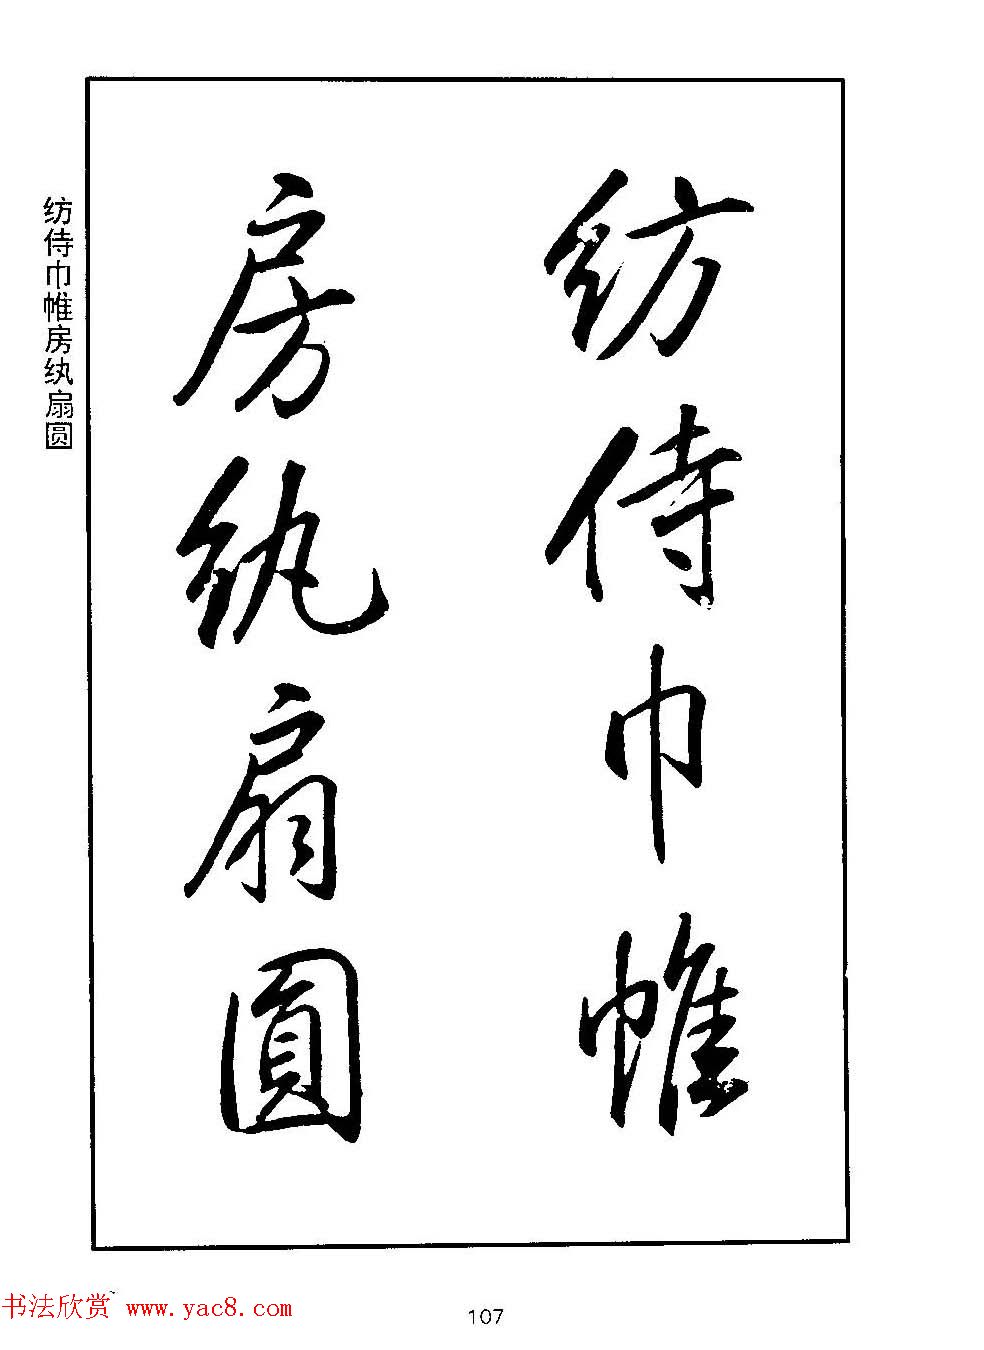 紡侍巾帷
房紈扇圓
纺侍巾帷房纨扇圆
书法欣赏 www.yac8.com
107